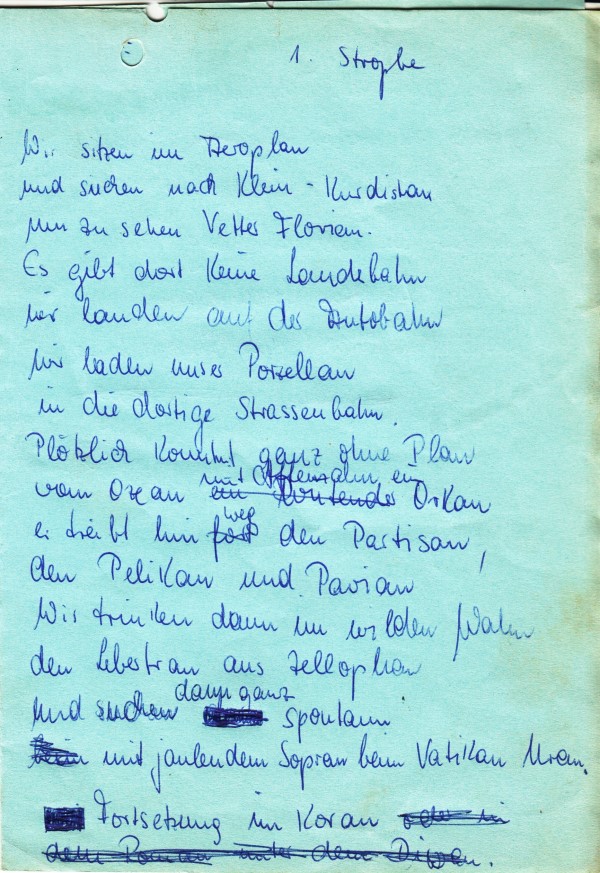 1. Strophe
Wir sitzen im Aeroplan
und suchen nach Klein-Kurdistan
um zu sehen Vetter Florian.
Es gibt dort keine Landebahn
wir landen auf der Autobahn
wir laden unser Porzellan
in die dortige Strassenbahn.
Plötzlich kommt ganz ohne Plan
mit Affenzahn ein
vom Ozean ein tosender Orkan
weg
er treibt hin fort den Partisan,
den Pelikan und Pavian
Wir trinken dann im wilden Wahn
den Lebertran aus Zellophan
dann ganz
und suchen spontan
beim mit jaulendem Sopran beim Vatikan Uran.
Fortsetzung im Koran oder in
dem Roman unter dem Diwan.